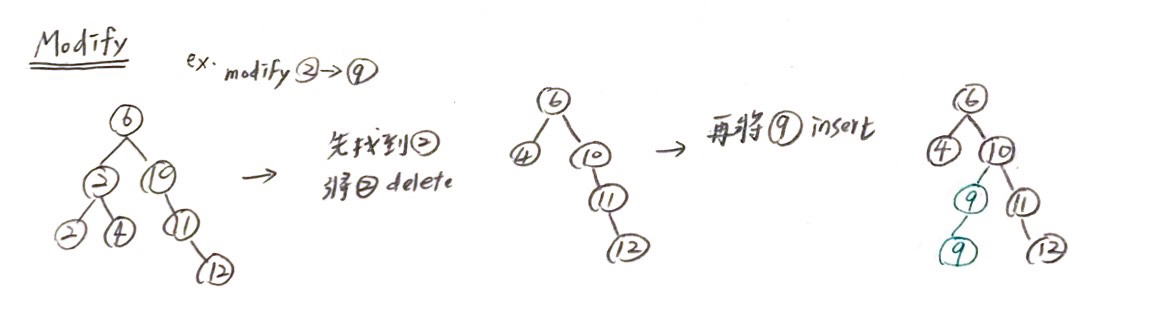 Modify
ex. modify ②→⑨
6
2
10
2
4
11
12
→
先找到②
將② delete
6
4
10
11
12
→
再將⑨ insert
6
4
10
9
11
9
12